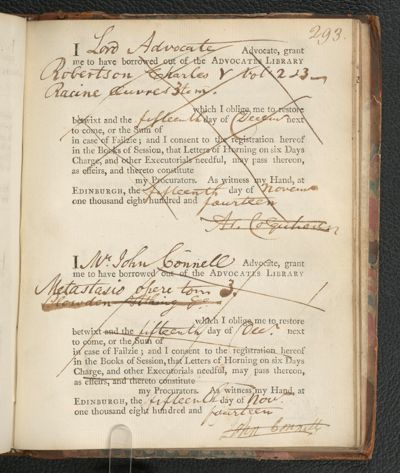 293.
I Lord Advocate Advocate, grant
me to have borrowed out of the ADVOCATES LIBRARY
Robertson Charles V Vol 2 & 3
Racine œuvres 3 tom.
which I oblige me to restore
betwixt and the fifteenth day of Decem next
to come, or the Sum of
in case of Failzie; and I consent to the registration hereof
in the Books of Session, that Letters of Horning on six Days
Charge, and other Executorials needful, may pass thereon,
as effeirs, and thereto constitute
my Procurators. As witness my Hand, at
EDINBURGH, the fifteenth day of Novem
one thousand eight hundred and fourteen
Ar. Colquhoun
I Mr. John Connell Advocate, grant
me to have borrowed out of the ADVOCATES LIBRARY
Metastasio opere tom 3.
which I oblige me to restore
betwixt and the fifteenth day of Decr. next
to come, or the Sum of
in case of Failzie; and I consent to the registration hereof
in the Books of Session, that Letters of Horning on six Days
Charge, and other Executorials needful, may pass thereon,
as effeirs, and thereto constitute
my Procurators. As witness my Hand, at
EDINBURGH, the fifteenth day of Novr.
one thousand eight hundred and fourteen
John Connell